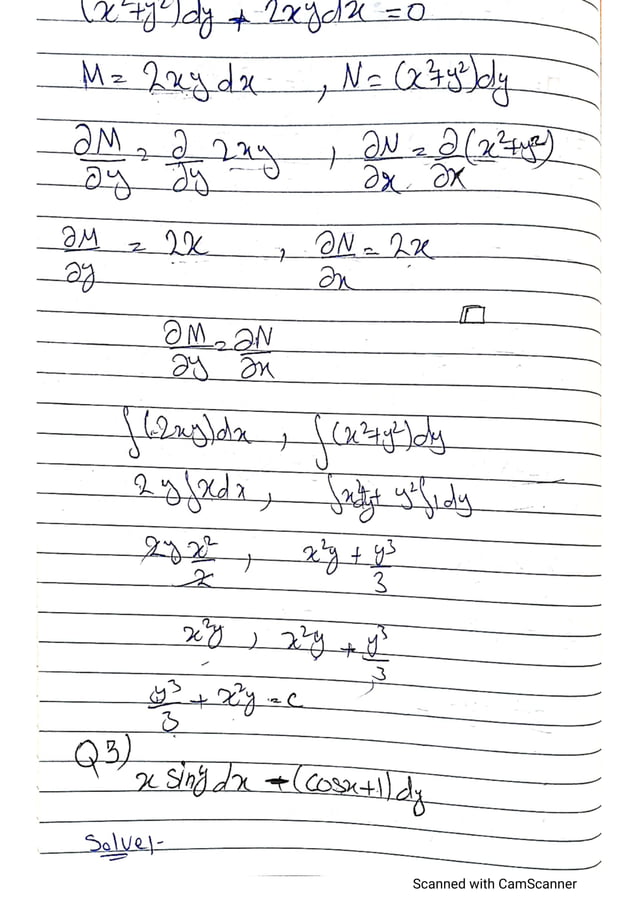 (x²+y²)dy + 2xydx = 0
M = 2xy dx , N = (x²+y²)dy
∂M/∂y = ∂/∂y 2xy , ∂N/∂x = ∂/∂x (x²+y²)
∂M/∂y = 2x , ∂N/∂x = 2x
∂M/∂y = ∂N/∂x
∫(2xy)dx , ∫(x²+y²)dy
2y∫xdx , ∫x²dy + y²∫1dy
2y x²/2 , x²y + y³/3
x²y , x²y + y³/3
y³/3 + x²y = c
Q3)
x siny dx + (cosx+1)dy
Solve:-
Scanned with CamScanner